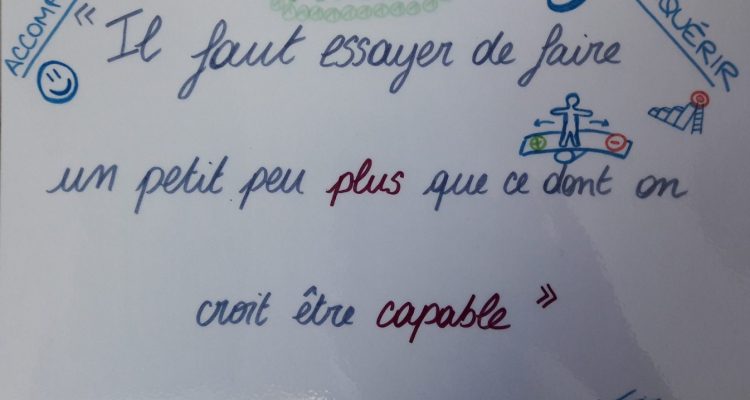 « Il faut essayer de faire
un petit peu plus que ce dont on
croit être capable »